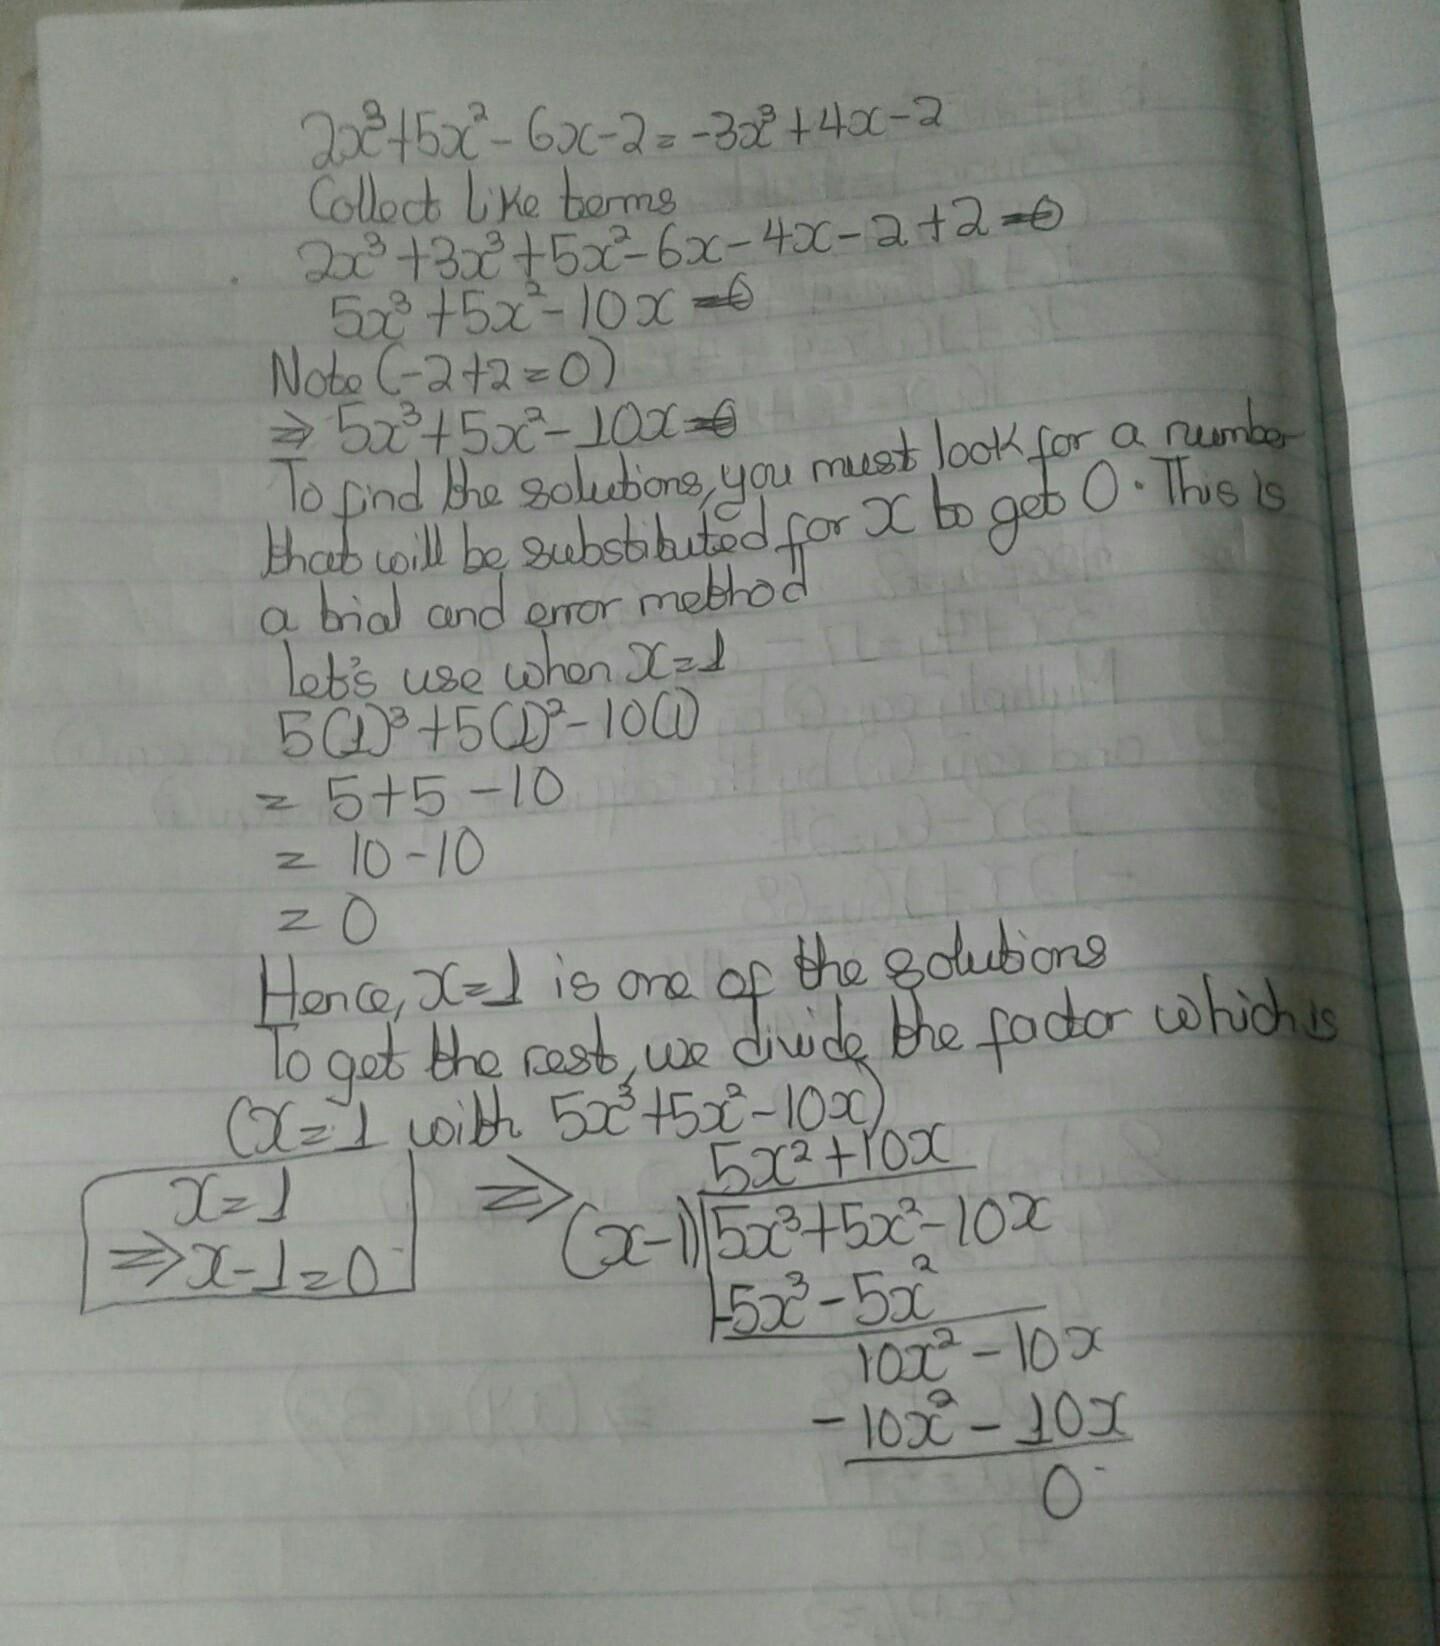 2x³+5x²-6x-2=-3x³+4x-2
Collect like terms
2x³+3x³+5x²-6x-4x-2+2=0
5x³+5x²-10x=0
Note(-2+2=0)
⇒ 5x³+5x²-10x=0
To find the solutions, you must look for a number
that will be substituted for x to get 0. This is
a trial and error method
let's use when x=1
5(1)³+5(1)²-10(1)
= 5+5-10
= 10-10
= 0
Hence, x=1 is one of the solutions
To get the rest, we divide the factor which is
(x=1 with 5x³+5x²-10x)
x=1
⇒x-1=0
⇒
5x²+10x
(x-1)|5x³+5x²-10x
-5x³-5x²
10x²-10x
-10x²-10x
0